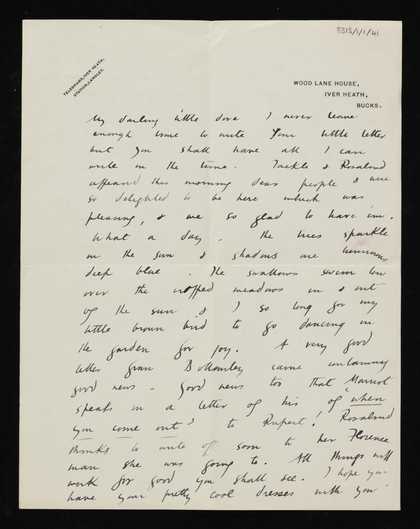 5315/1/1/41
TELEGRAMS, IVER HEATH.
STATION, LANGLEY.
WOOD LANE HOUSE,
IVER HEATH,
BUCKS.
My darling little dove I never leave
enough time to write your little letter
but you shall have all I can
write in the time. Jackle & Rosalind
appeared this morning dear people &
so delighted to be here which was
pleasing, & we so glad to have 'em.
What a day. The trees sparkle
in the sun & shadows are
deep blue. The swallows swim low
over the cropped meadows in & out
of the sun & I so long for my
little brown bird to go dancing in
the garden for joy. A very good
letter from B. came containing
good news. Good news too that Marriot
speaks in a letter of his of when
you come out! to Rupert! Rosalind
thinks to write off soon to her Florence
man she was going to. All things will
work for good you shall see. I hope you
have your pretty cool dresses with you